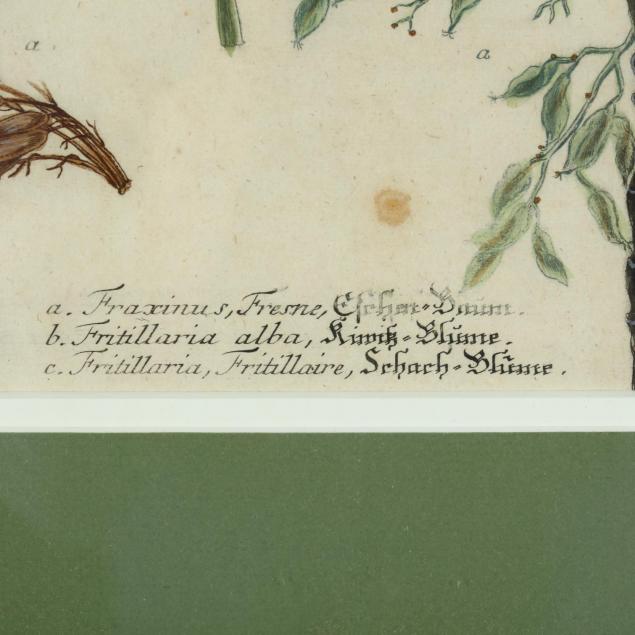 a
a
a. Fraxinus, Fresne, Eschen-Baum.
b. Fritillaria alba, Kiwitz-Blŭme.
c. Fritillaria, Fritillaire, Schach-Blŭme.